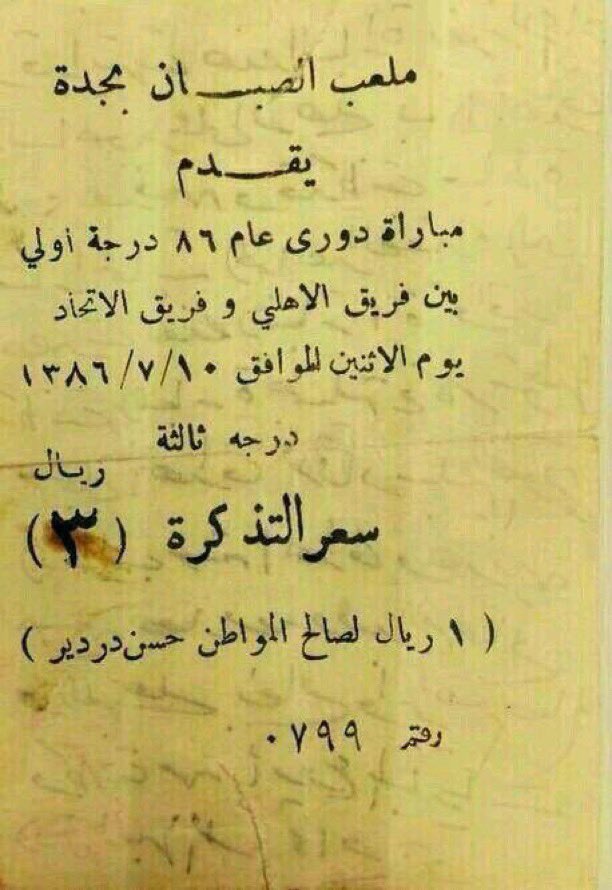 ملعب الصبــان بجدة
يقــدم
مباراة دورى عام ٨٦ درجة أولي
بين فريق الاهلي و فريق الاتحاد
يوم الاثنين الموافق ١٣٨٦/٧/١٠
درجه ثالثة
ريال
سعر التذكرة (٣)
(١ ريال لصالح المواطن حسن دردير)
رقم ٠٧٩٩